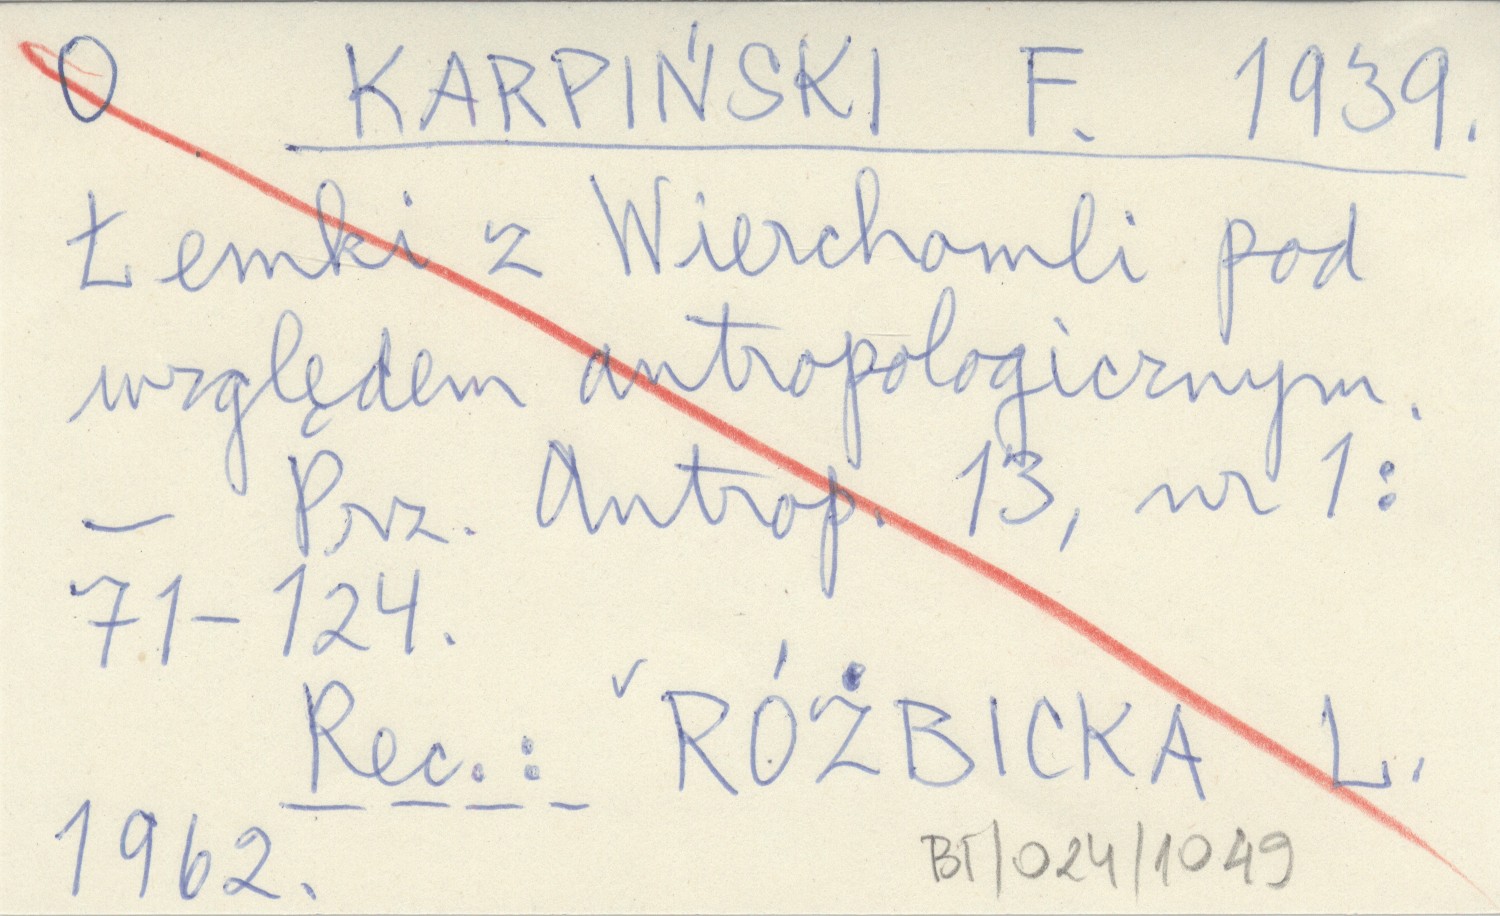 O KARPIŃSKI F. 1939.
Łemki z Wierchomli pod
względem antropologicznym.
— Prz. Antrop. 13, nr 1:
71-124.
Rec.: ✓ RÓŻBICKA L.
1962.
BT/024/1049